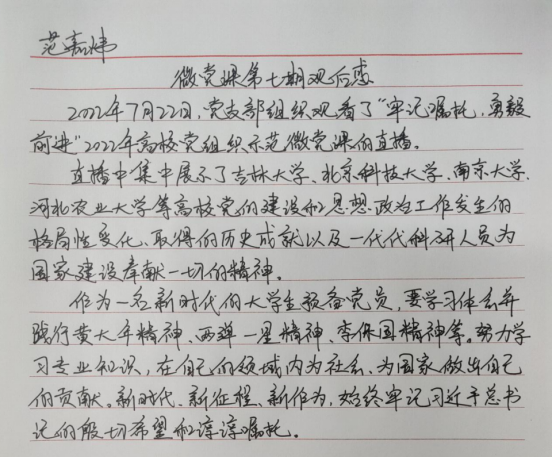 范嘉炜
微党课第七期观后感
2022年7月22日,党支部组织观看了“牢记嘱托,勇毅
前进”2022年高校党组织示范微党课的直播。
直播中集中展示了吉林大学、北京科技大学、南京大学、
河北农业大学等高校党的建设和思想政治工作发生的
格局性变化、取得的历史成就以及一代代科研人员为
国家建设奉献一切的精神。
作为一名新时代的大学生预备党员,要学习体会并
践行黄大年精神、两弹一星精神、李保国精神等。努力学
习专业知识,在自己的领域内为社会、为国家做出自己
的贡献。新时代、新征程、新作为,始终牢记习近平总书
记的殷切希望和谆谆嘱托。